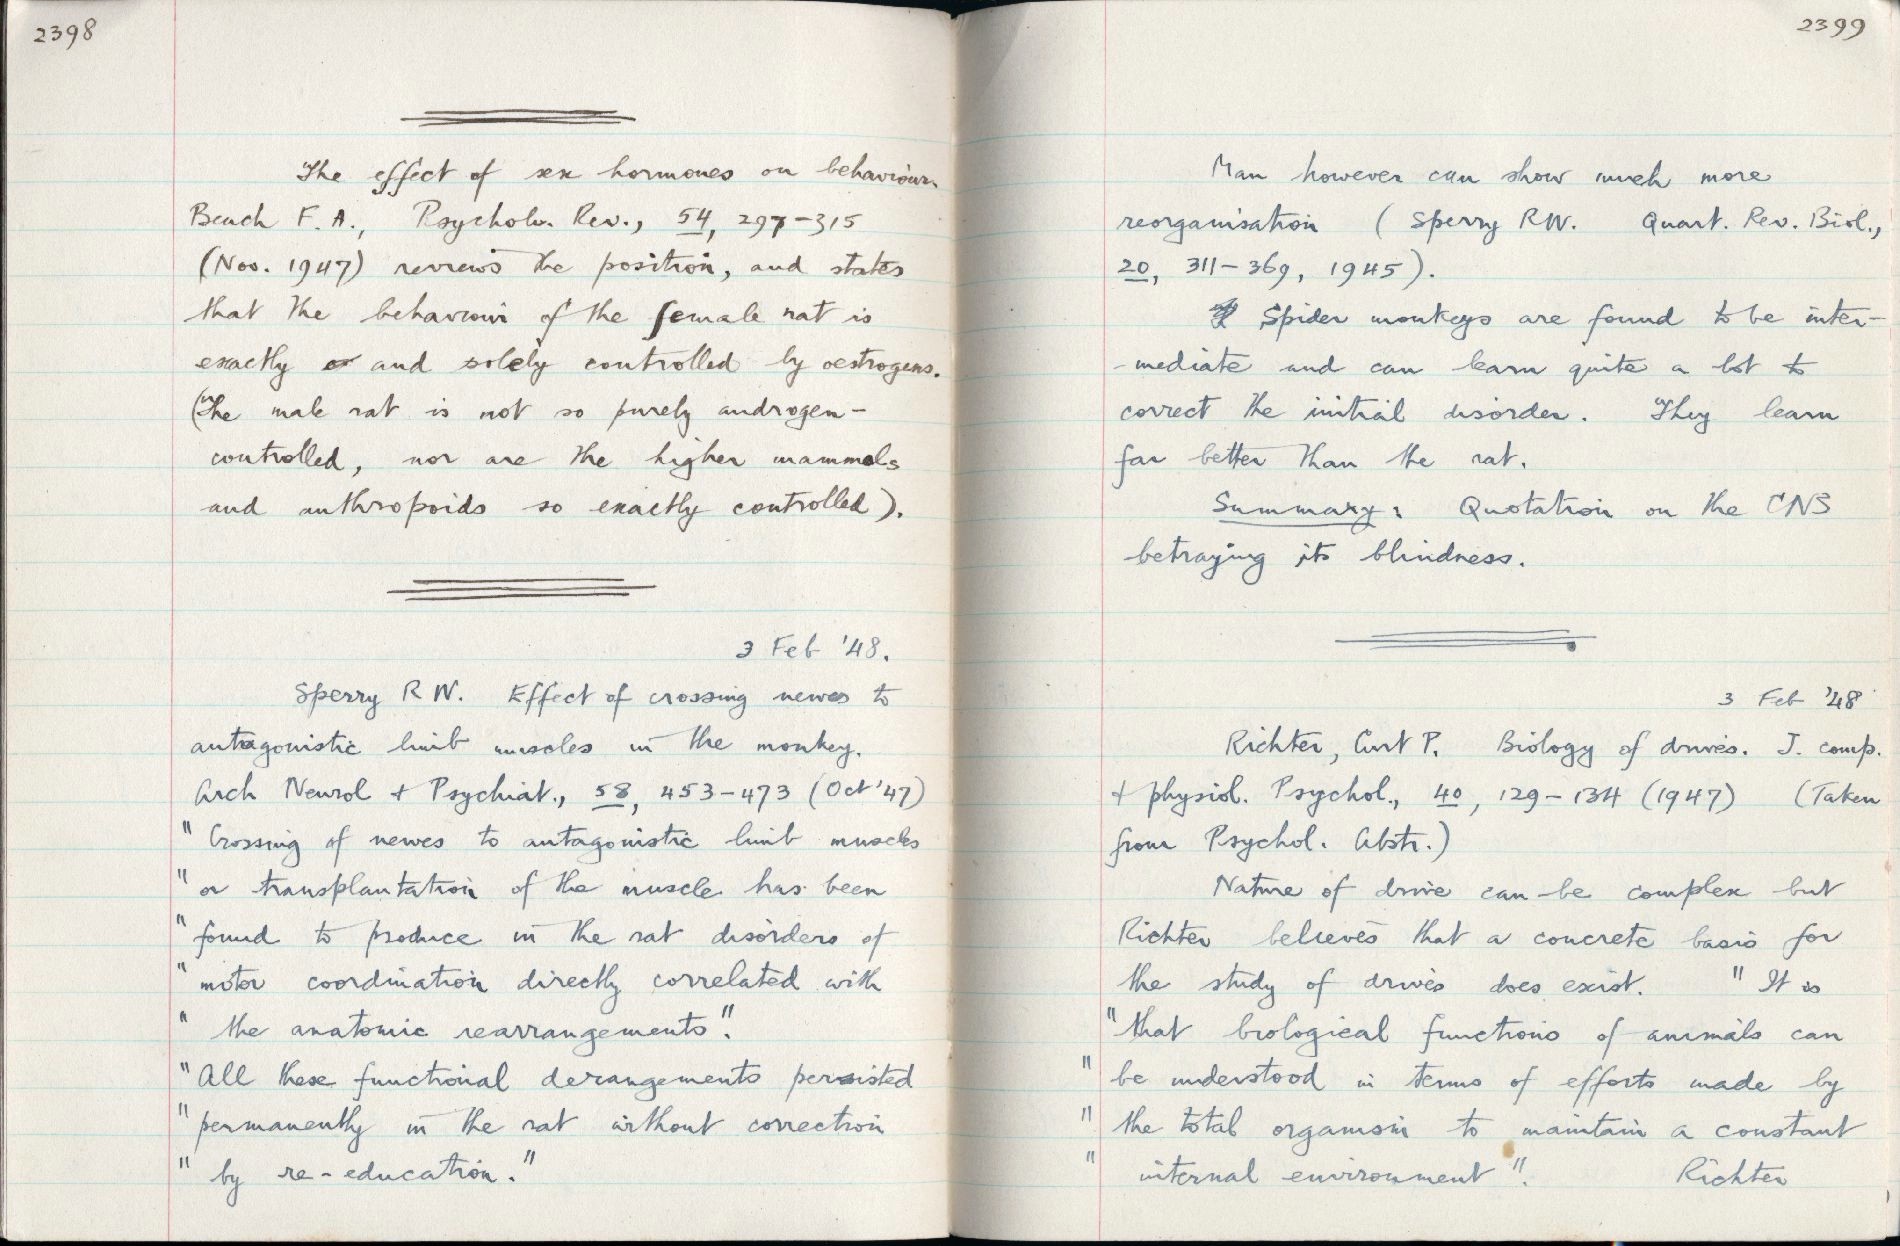 2398
The effect of sex hormones on behaviour.
Beach F. A., Psychol. Rev., 54, 297-315
(Nov. 1947) reviews the position, and states
that the behaviour of the female rat is
exactly and solely controlled by oestrogens.
(The male rat is not so purely androgen-
controlled, nor are the higher mammals
and anthropoids so exactly controlled).
3 Feb '48.
Sperry R W. Effect of crossing nerves to
antagonistic limb muscles in the monkey.
Arch Neurol + Psychiat., 58, 453-473 (Oct '47)
" Crossing of nerves to antagonistic limb muscles
" or transplantation of the muscle has been
" found to produce in the rat disorders of
" motor coordination directly correlated with
" the anatomic rearrangements".
" All these functional derangements persisted
" permanently in the rat without correction
" by re-education."
2399
Man however can show much more
reorganisation (Sperry RW. Quart. Rev. Biol.,
20, 311-369, 1945).
Spider monkeys are found to be inter-
-mediate and can learn quite a lot to
correct the initial disorder. They learn
far better than the rat.
Summary: Quotation on the CNS
betraying its blindness.
3 Feb '48
Richter, Curt P. Biology of drives. J. comp.
+ physiol. Psychol., 40, 129-134 (1947) (Taken
from Psychol. Abstr.)
Nature of drive can be complex but
Richter believes that a concrete basis for
the study of drives does exist. " It is
" that biological functions of animals can
" be understood in terms of efforts made by
" the total organism to maintain a constant
" internal environment". Richter